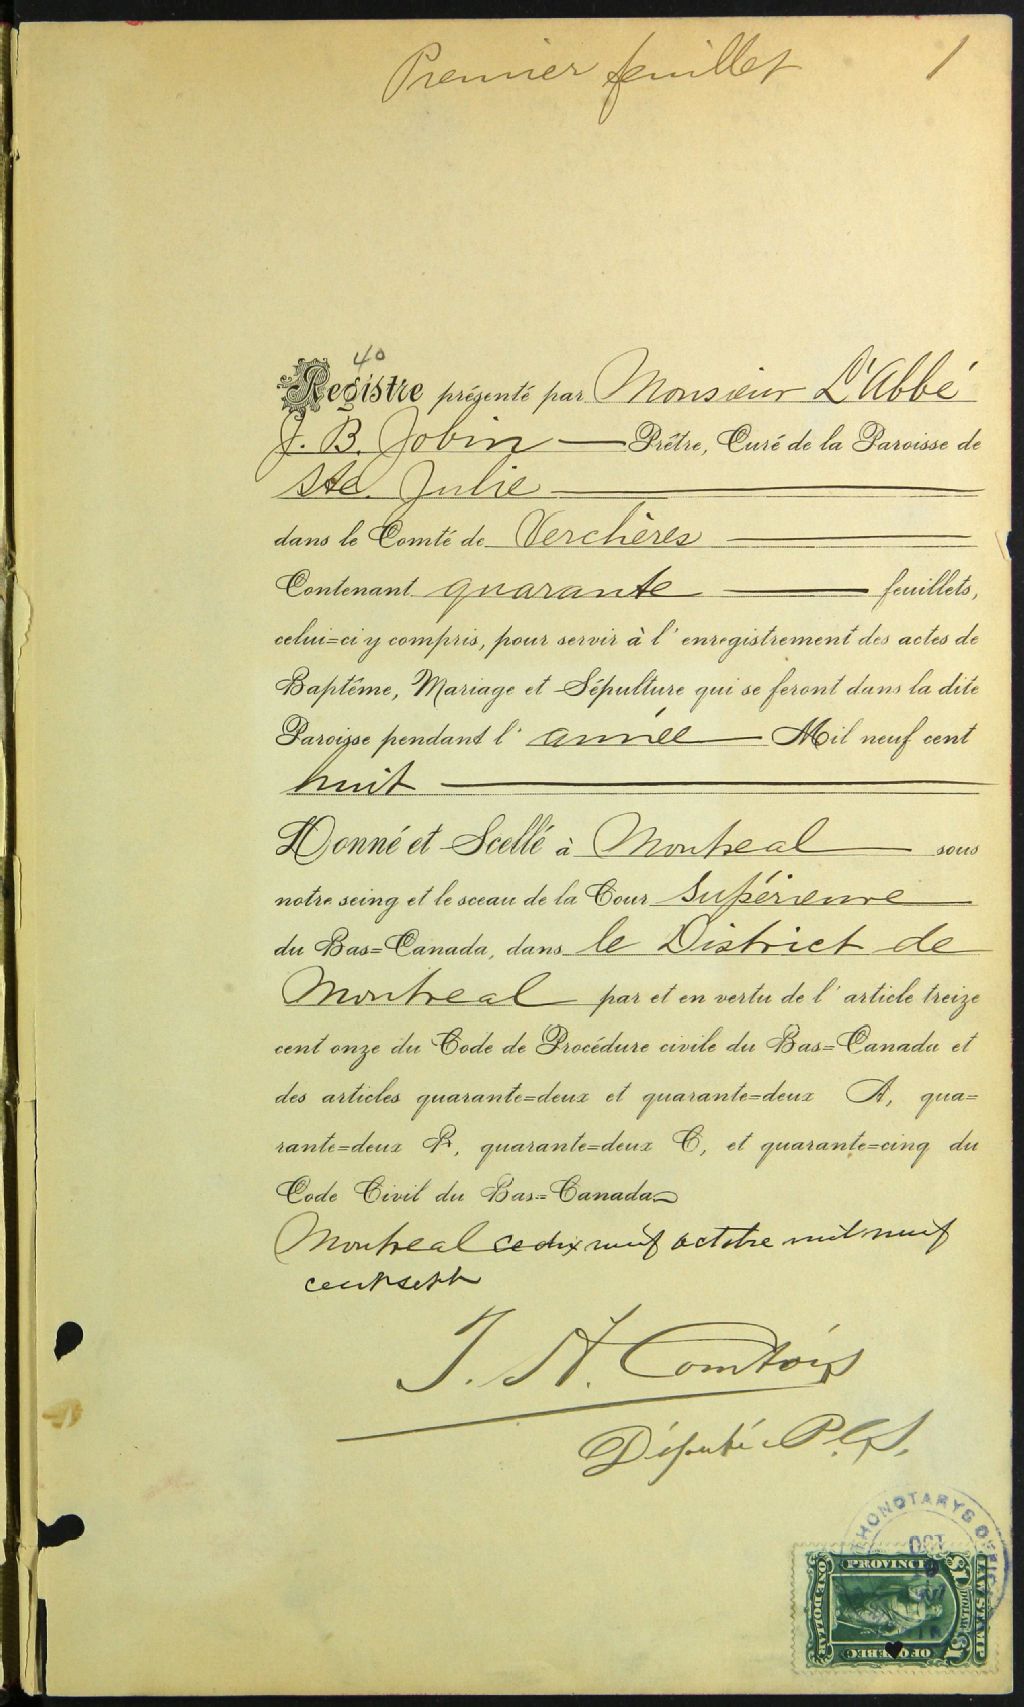 Premier feuillet 1
40
Registre présenté par Monsieur L'Abbé
J. B. Jobin — Prêtre, Curé de la Paroisse de
Ste. Julie —
dans le Comté de Verchères —
Contenant quarante — feuillets,
celui=ci y compris, pour servir à l'enregistrement des actes de
Baptême, Mariage et Sépulture qui se feront dans la dite
Paroisse pendant l'année — Mil neuf cent
huit —
Donné et Scellé à Montreal — sous
notre seing et le sceau de la Cour Supérieure
du Bas=Canada, dans le District de
Montreal par et en vertu de l'article treize
cent onze du Code de Procédure civile du Bas=Canada et
des articles quarante=deux et quarante=deux A, qua=
rante=deux B, quarante=deux C, et quarante=cinq du
Code Civil du Bas=Canada
Montreal ce dix neuf octobre mil neuf
cent sept
J. A. Comtois
Député P.C.S.
THONOTARYS OFFIC
OCT
PROVINCE
OF QUEBEC
LAW STAMP
ONE DOLLAR
$1 DOLLAR $1